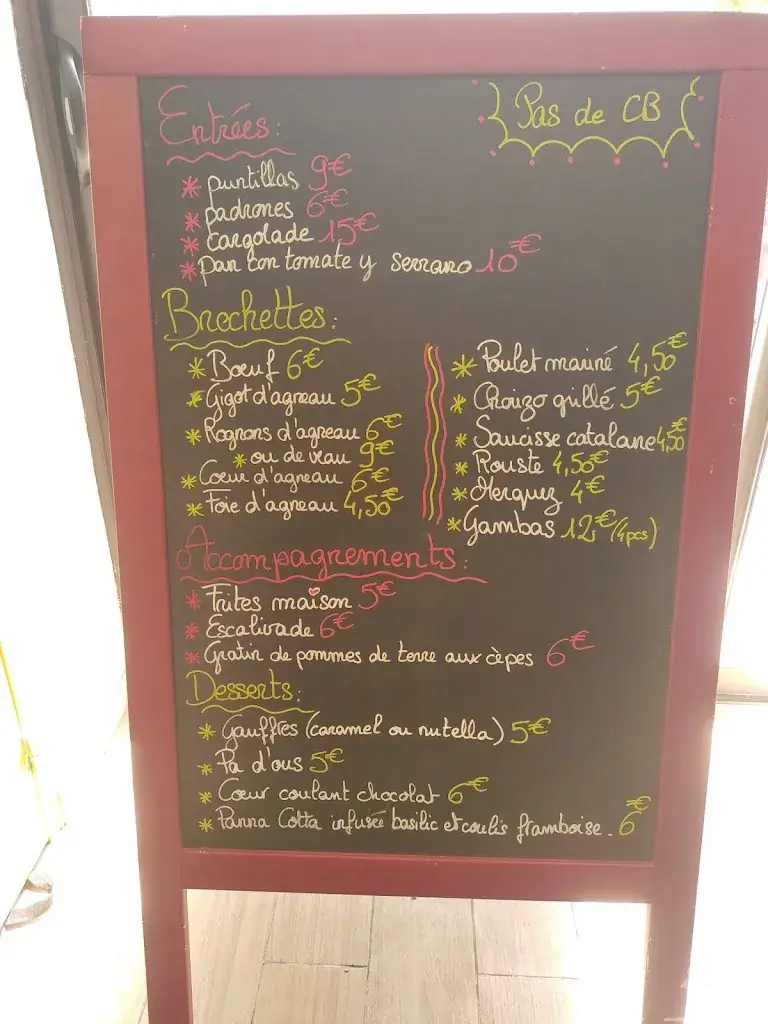 Entrées:
Pas de CB
* puntillas 9€
* padrones 6€
* Cargolade 15€
* pan con tomate y serrano 10€
Brochettes:
* Boeuf 6€
* Gigot d'agneau 5€
* Rognons d'agneau 6€
* ou de veau 9€
* Coeur d'agneau 6€
* Foie d'agneau 4,50€
* Poulet mariné 4,50€
* Chorizo grillé 5€
* Saucisse catalane 4,50€
* Rouste 4,50€
* Merguez 4€
* Gambas 12€ (4pcs)
Accompagnements:
* Frites maison 5€
* Escalivade 6€
* Gratin de pommes de terre aux cèpes 6€
Desserts:
* Gauffres (caramel ou nutella) 5€
* Pa d'ous 5€
* Coeur coulant chocolat 6€
* Panna Cotta infusée basilic et coulis framboise. 6€